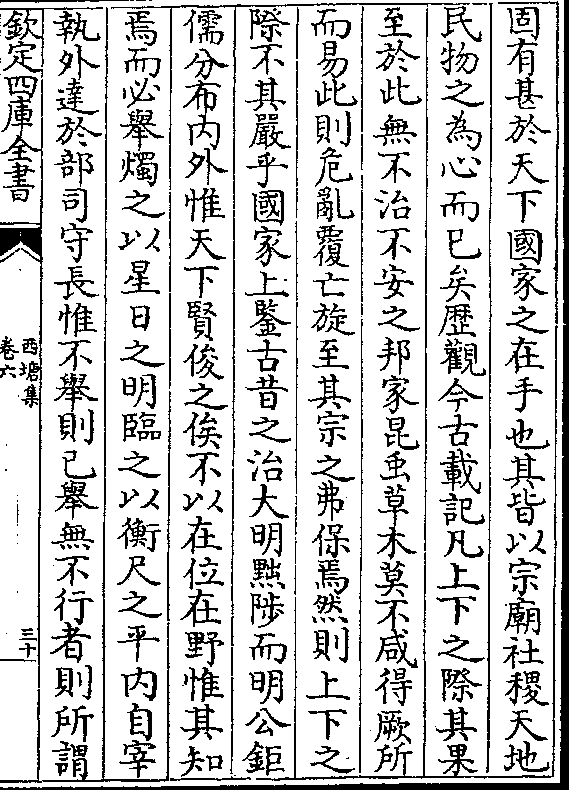 固有甚於天下國家之在手也其皆以宗廟社稷天地
民物之為心而已矣歴觀今古載記凡上下之際其果
至於此無不治不安之邦家昆虫草木莫不咸得厥所
而易此則危亂覆亡旋至其宗之弗保焉然則上下之
際不其嚴乎國家上鑒古昔之治大明黜陟而明公鉅
儒分布内外惟天下賢俊之俟不以在位在野惟其知
焉而必舉燭之以星日之明臨之以衡尺之平内自宰
執外達於部司守長惟不舉則已舉無不行者則所謂
欽定四庫全書
西塘集
卷六
三十